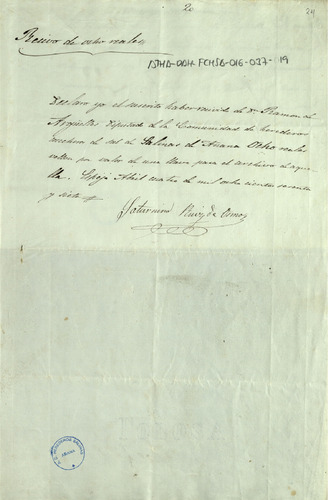 20
24
Recivo de ocho reales
ATHA-DAH-FCHSB-016-027-19
Declaro yo el suscrito haber recivido de Dn Ramon de
Argüelles Diputado de la Comunidad de herederos
de sal de Salinas de Añana Ocho reales
vellon por valor de una llave para el archivo de aque
lla. Espejo Abril cuatro de mil ocho cientos sesenta
y siete
Saturnino Ruiz de